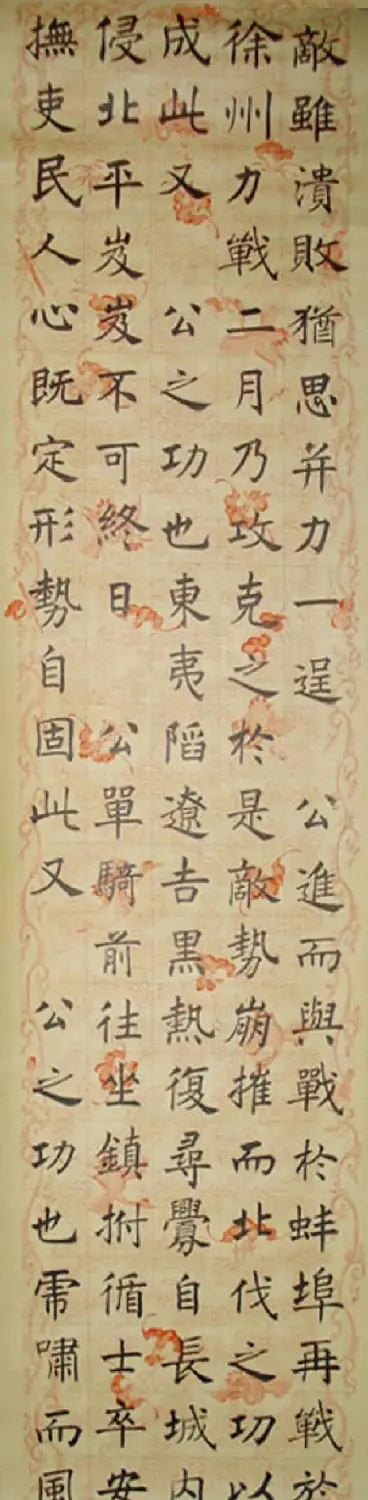 敵雖潰敗猶思并力一逞 公進而與戰於蚌埠再戰於
徐州力戰二月乃攻克之於是敵勢崩摧而北伐之功以
成此又 公之功也東夷陷遼吉黑熱復尋釁自長城內
侵北平岌岌不可終日 公單騎前往坐鎮拊循士卒安
撫吏民人心既定形勢自固此又 公之功也雷嘯而風